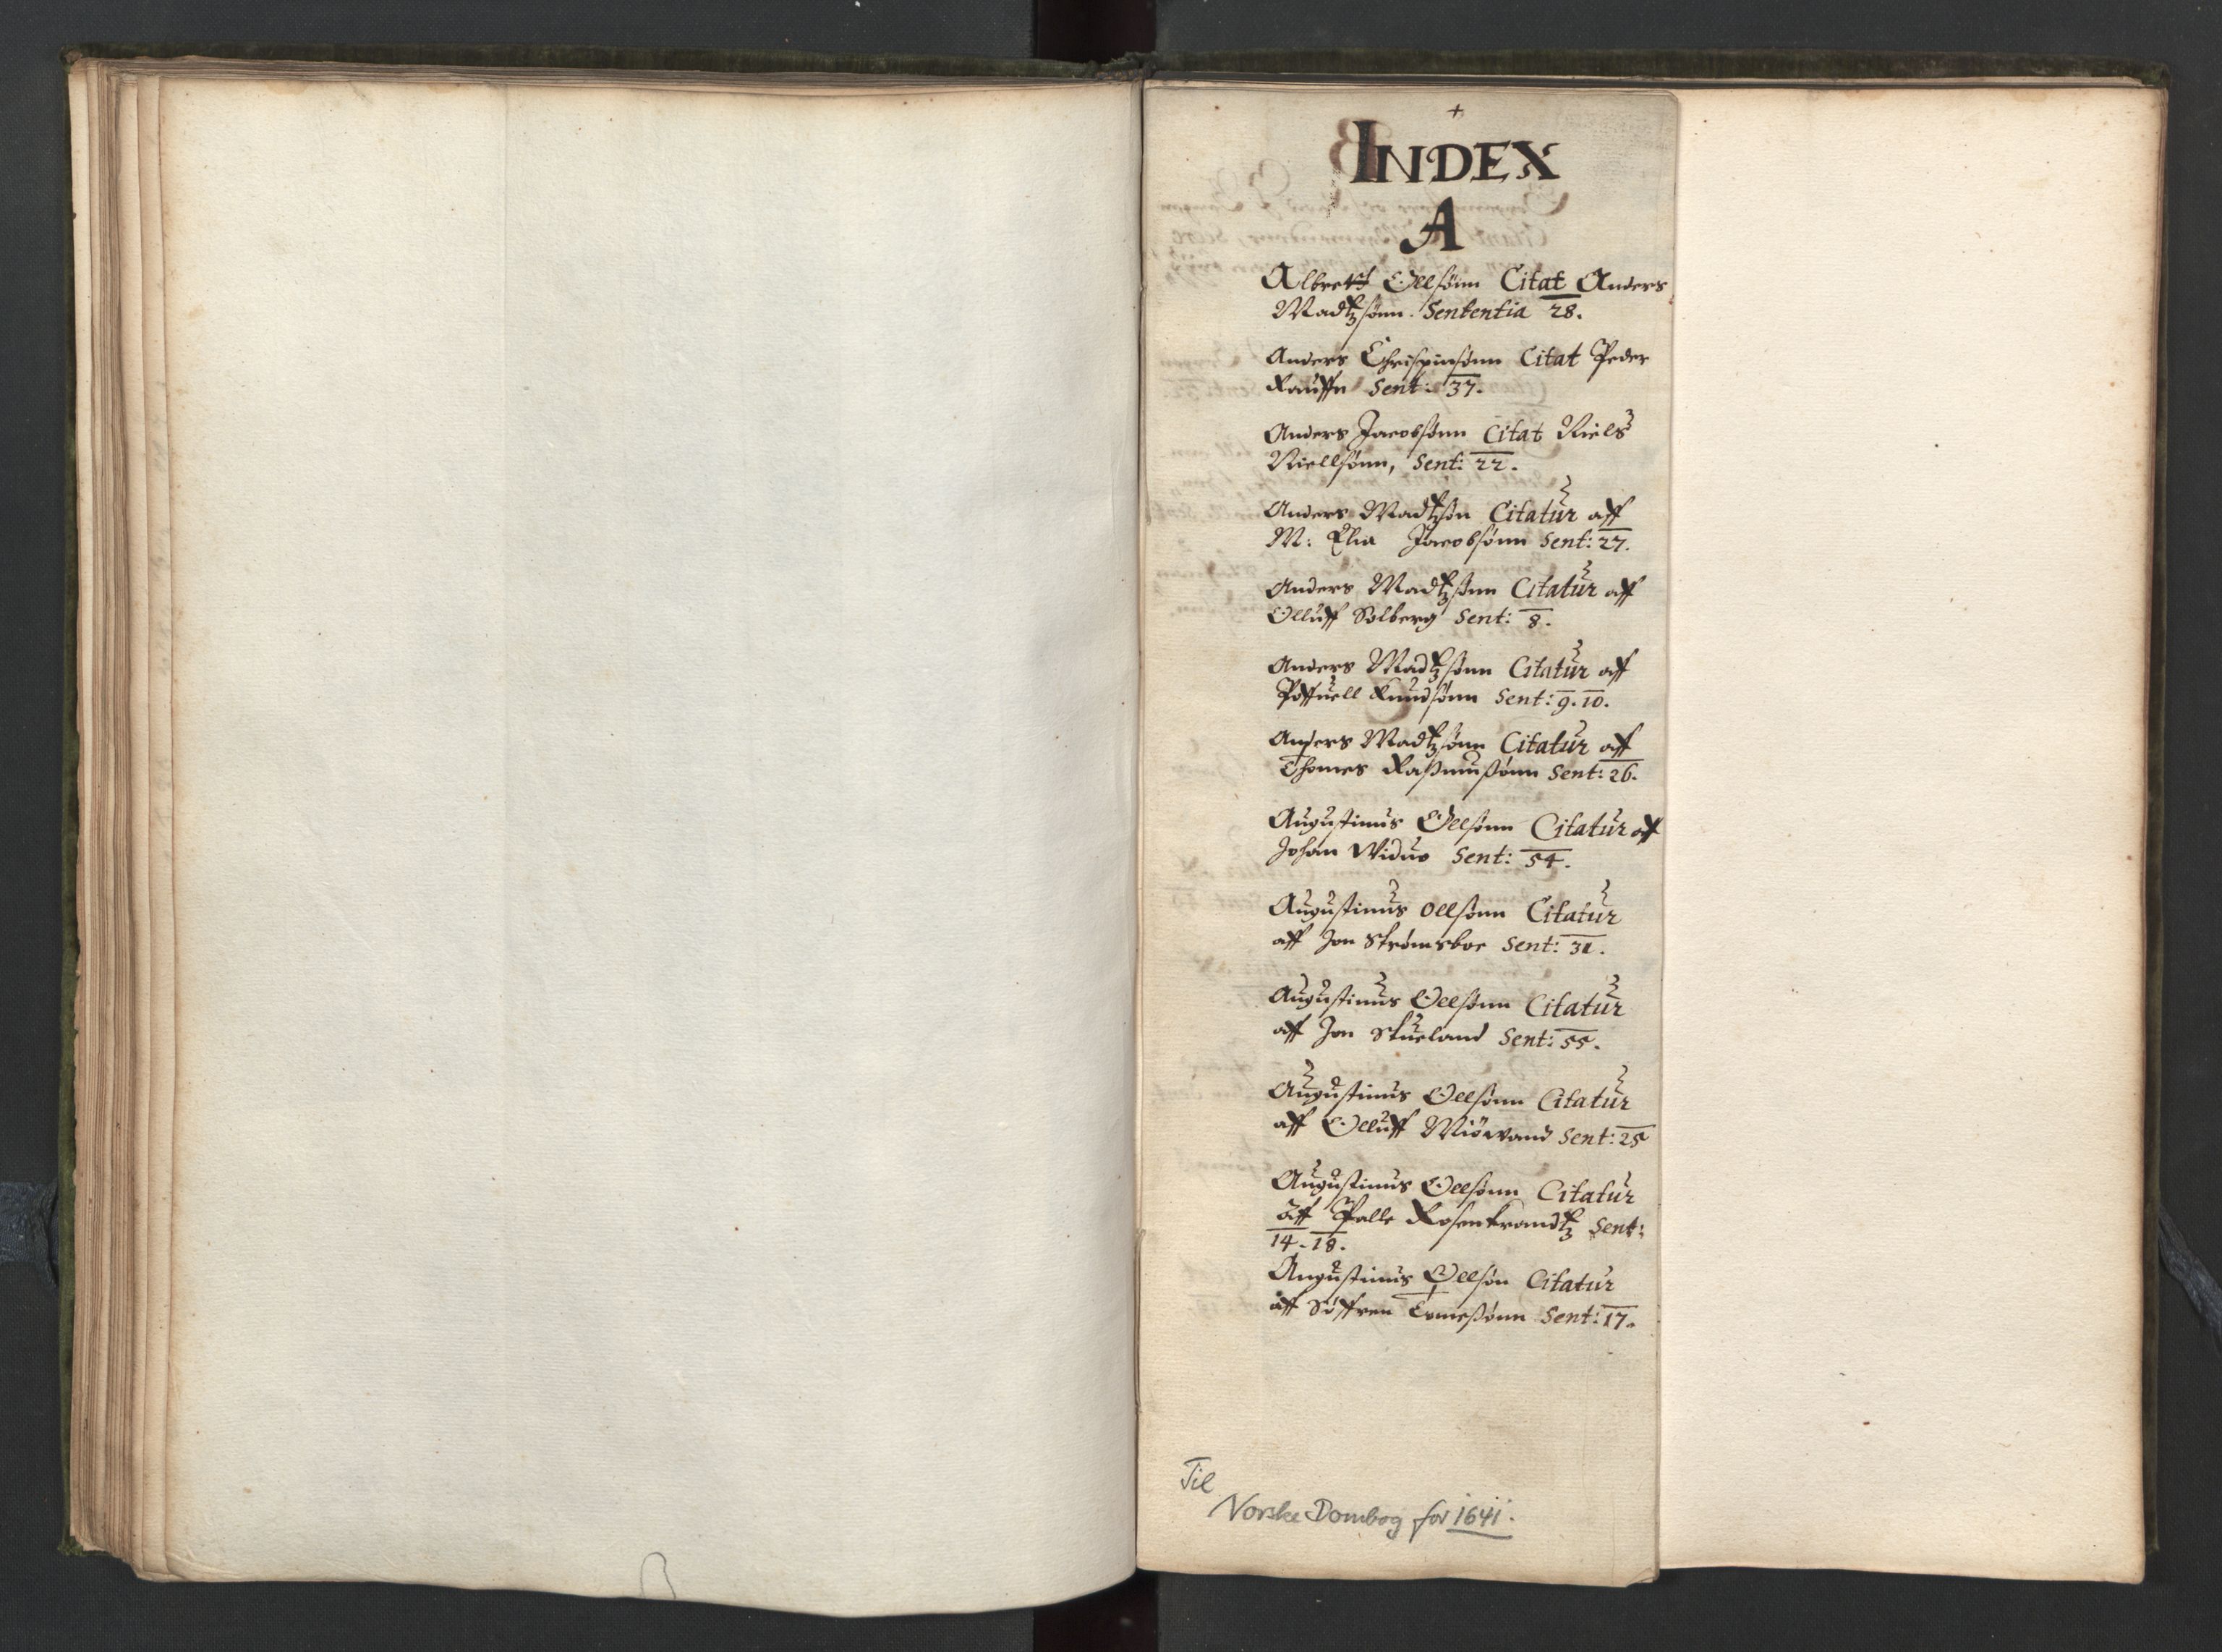 +
INDEX
A
Albrett Ollsønn Citat Anders
Madtzsønn. Sententia 28.
Anders Chrispinsønn Citat Peder
Rauffn Sent: 37.
Anders Jacobsønn Citat Niels
Niellsønn, Sent: 22.
Anders Madtzsøn Citatur aff
M: Elia Jacobsønn Sent: 27.
Anders Madtzsønn Citatur aff
Olluff Solberg Sent: 8.
Anders Madtzsønn Citatur aff
Poffuell Knudsønn Sent: 9. 10.
Anders Madtzsønn Citatur aff
Thomes Rasmussønn Sent: 26.
Augustinus Ollsønn Citatur aff
Johan Widuo Sent: 54.
Augustinus Ollsønn Citatur
aff Jon Strømsboe Sent: 31.
Augustinus Ollsønn Citatur
aff Jon Stueland Sent: 55.
Augustinus Ollsønn Citatur
aff Olluff Miöwand Sent: 25
Augustinus Ollsønn Citatur
aff Palle Rosenkrandtz Sent:
14. 18.
Augustinus Ollsøn Citatur
aff Søffren Tomessønn Sent: 17.
Til
Norske Dombog for 1641.